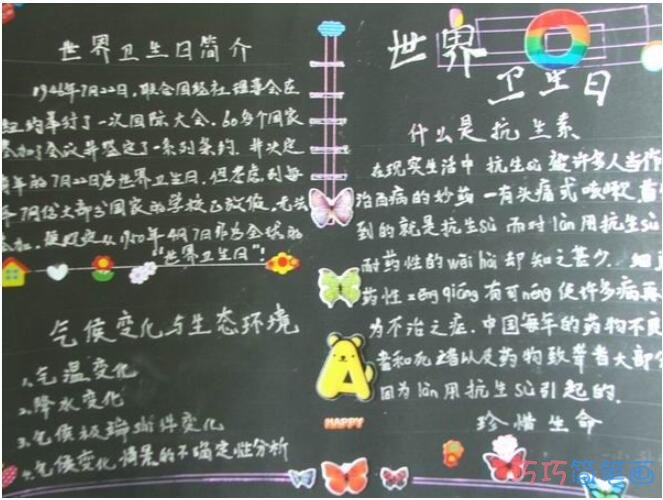 世界卫生日简介
1946年7月22日,联合国经社理事会在
纽约举行了一次国际大会.60多个国家
参加了会议并签定了一系列条约.并决定
每年的7月22日为世界卫生日,但考虑到每
年7月份大部分国家的学校已放假,无法
参加,便规定从1950年4月7日作为全球的
“世界卫生日”!
气候变化与生态环境
1.气温变化
2.降水变化
3.气候极端shi件变化
4.气候变化情景的不确定性分析
A
HAPPY
世界
卫生日
什么是抗生素
在现实生活中 抗生sù 被许多人当作
治百病的妙药 一有头痛或咳嗽,首
到的就是抗生sù 而对làn用抗生sù
耐药性的wēi hài 却知之甚少.细
药性zēng qiáng 有可néng 使许多病再
为不治之症.中国每年的药物不
者和死亡者以及药物致聋者大部
因为làn用抗生sù引起的.
珍惜生命
巧巧简笔画